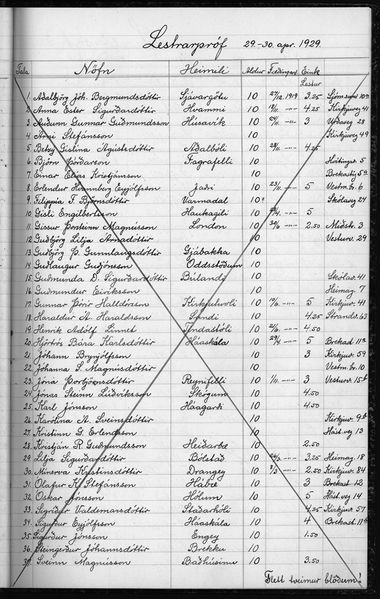 Lestrarpróf 29.-30. apr. 1929.
Tala Nöfn Heimili Aldur Fæðingard. Eink.
Lestur
1. Aðalbjörg Jóh. Bergmundsdóttir Sjávargötu 10 27/12 1919 3.25
2. Anna Ester Sigurðardóttir Hvammi 10 4.25 Kirkjuveg 41
3. Auðunn Gunnar Guðmundsson Húsavík 10 3 Urðaveg 28
4. Árni Stefánsson 10 Kirkjuveg 49
5. Betsý Gíslína Ágústsdóttir Aðalbóli 10 4.25
6. Björn Þórðarson Fagrafelli 10 5
7. Einar Elías Kristjánsson 10
8. Erlendur Hvannberg Eyjólfsson Jaðri 10 5 Vestm. b. 6
9. Filippía T. Björnsdóttir Varmadal 10 Skólaveg 24
10. Gísli Engilbertsson Haukagili 10 5
11. Gissur Þorsteinn Magnússon London 10 2.50 Miðstr. 3
12. Guðbjörg Lilja Árnadóttir 10 Vesturv. 29
13. Guðbjörg P. Gunnlaugsdóttir Gjábakka 10
14. Guðlaugur Guðjónsson Oddsstöðum 10
15. Guðmunda D. Sigurðardóttir Búlandi 10 Skólav. 41
16. Guðmundur Eiríksson 10 Heimag. 7
17. Gunnar Þórir Halldórsson Kirkjuhvoli 10 5 Kirkjuv. 41
18. Haraldur A. Haraldsson Sandi 10 4.25 Strandv. 63
19. Henrik Adolf Linnet Tindastóli 10 4.50
20. Hjördís Bára Karlsdóttir Háaskála 10 5 Brekast. 11
21. Jóhann Brynjólfsson 10 3 Kirkjuv.
22. Jóhanna S. Magnúsdóttir 10 Vestm. b. 10
23. Jóna Þorbjörnsdóttir Reynifelli 10 3 Vesturv. 15
24. Jónas Steinn Lúðvíksson Skógum 10 4.50
25. Karl Jónsson Háagarði 10 4.50
26. Karolína A. Sveinsdóttir 10 Kirkjuv. 9
27. Kristinn G. Erlendsson 10 Hást.veg 13
28. Kristján R. Guðmundsson Heiðarbæ 10 2.50
29. Lilja Sigurðardóttir Bólstað 10 3.25 Heimag. 18
30. Minerva Kristinsdóttir Drangey 10 2.50 Kirkjuv. 84
31. Ólafur K. Stefánsson Hábæ 10 3 Brekast. 12
32. Óskar Jónsson Hólum 10 5 Hást.veg 14
33. Sigríður Valdemarsdóttir Staðarhóli 10 4.50 Kirkjuv. 57
34. Sigurður Eyjólfsson Háaskála 10 4 Brekast. 11
35. Sigurður Jónsson Engey 10 1.50
36. Steingerður Jóhannsdóttir Brekku 10
37. Sveinn Magnússon Baðhúsinu 10 3.50
Flett tveimur blöðum!